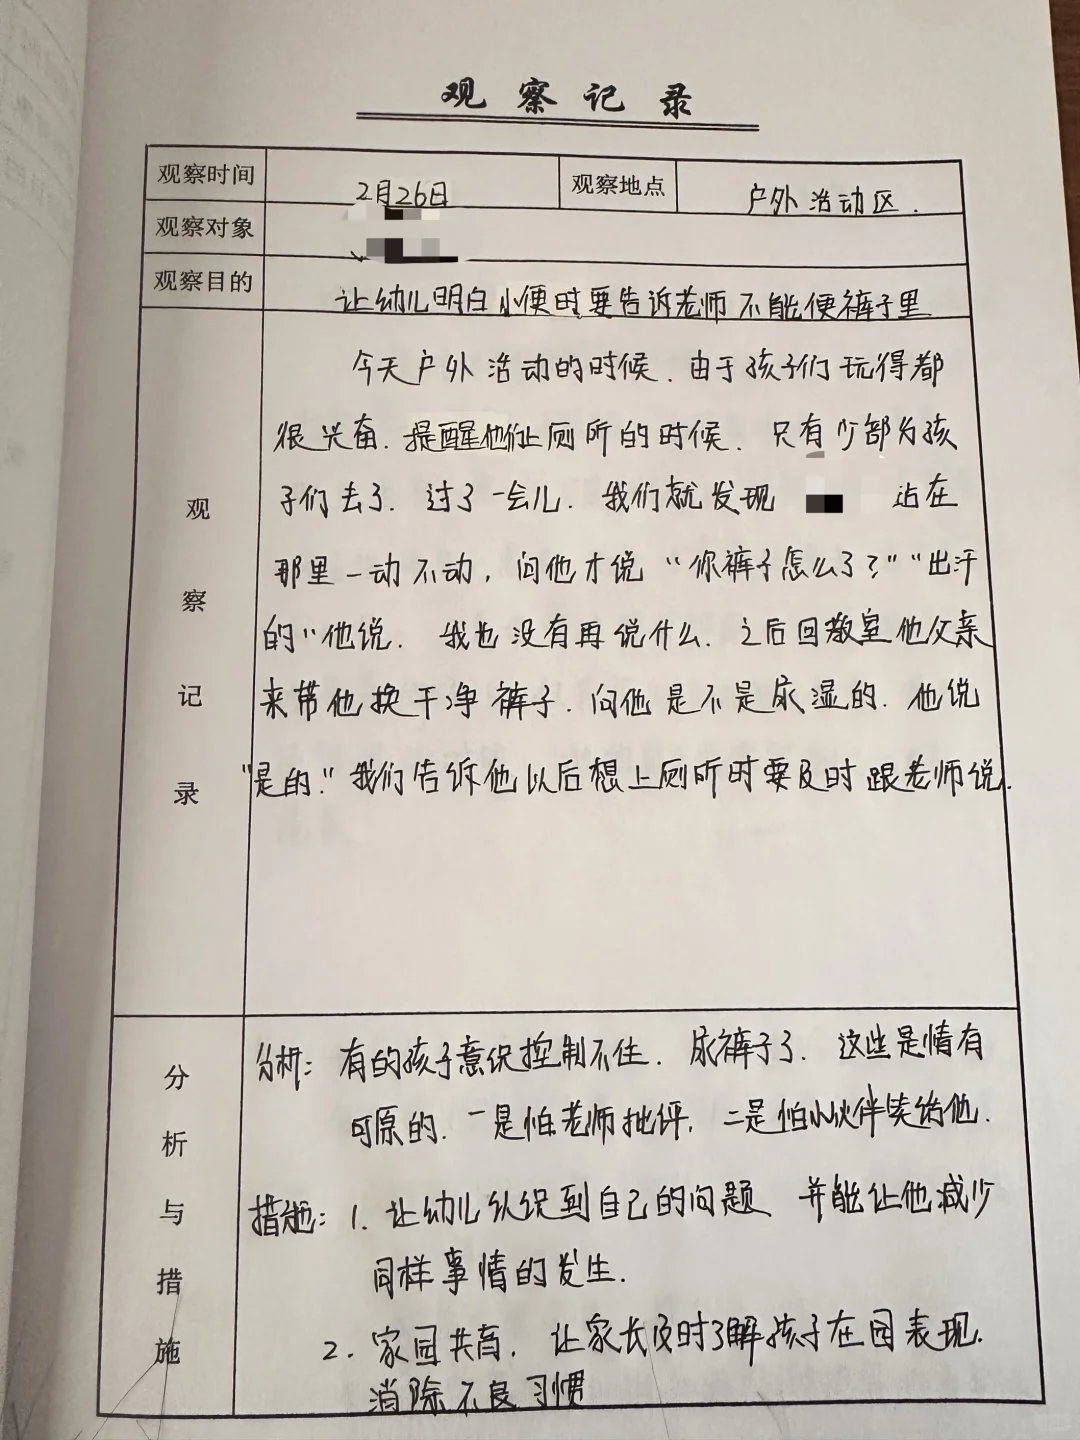 观察记录
观察时间 2月26日 观察地点 户外活动区.
观察对象
观察目的 让幼儿明白小便时要告诉老师不能便裤子里
观察记录
今天户外活动的时候.由于孩子们玩得都
很兴奋.提醒他们上厕所的时候.只有少部分孩
子们去了.过了一会儿.我们就发现 站在
那里一动不动,问他才说“你裤子怎么了?”“出汗
的”他说.我也没有再说什么.之后回教室他父亲
来带他换干净裤子.问他是不是尿湿的.他说
“是的.”我们告诉他以后想上厕所时要及时跟老师说.
分析与措施
分析:有的孩子意识控制不住.尿裤子了.这些是情有
可原的.一是怕老师批评,二是怕小伙伴笑话他.
措施:1.让幼儿认识到自己的问题、并能让他减少
同样事情的发生.
2.家园共育,让家长及时了解孩子在园表现.
消除不良习惯